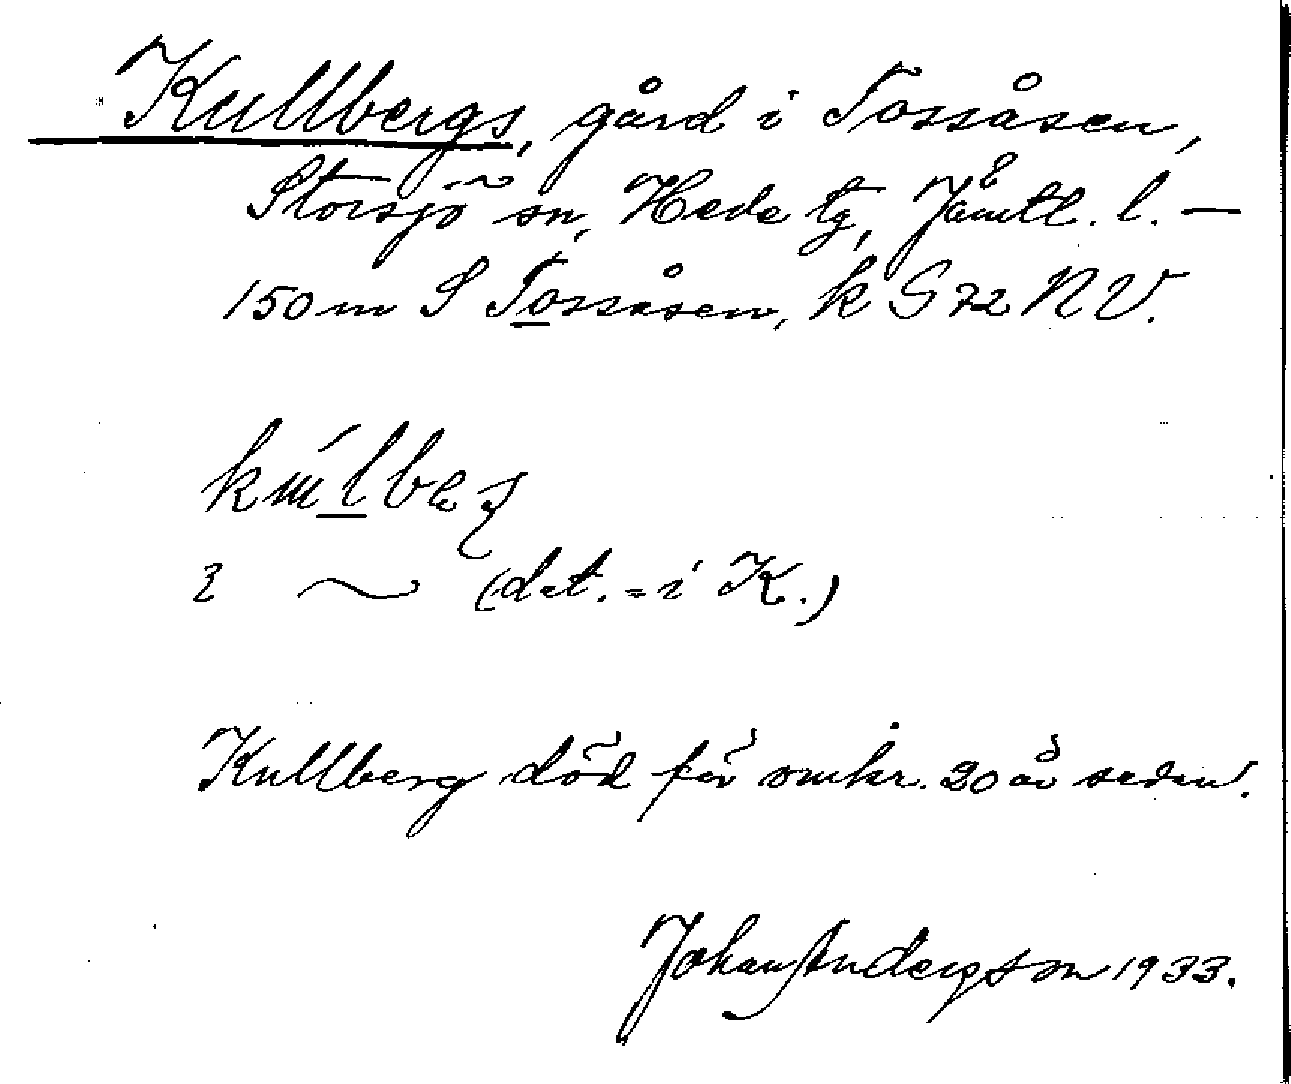 Kullbergs, gård i Tossåsen,
Storsjö sn, Hede tg, Jämtl. l. —
150 m S Tossåsen, k G 72 NV.
(dat. = i K.)
Kullberg död för omkr. 20 år sedan.
Johan Andersson 1933.